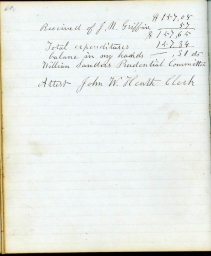 $ 157,08
Received of J. M. Griffin 57
$ 157,65
Total expenditures 157,34
balance in my hands — ,31 cts
William Sanders Prudential Committee
Attest John W. Heath Clerk